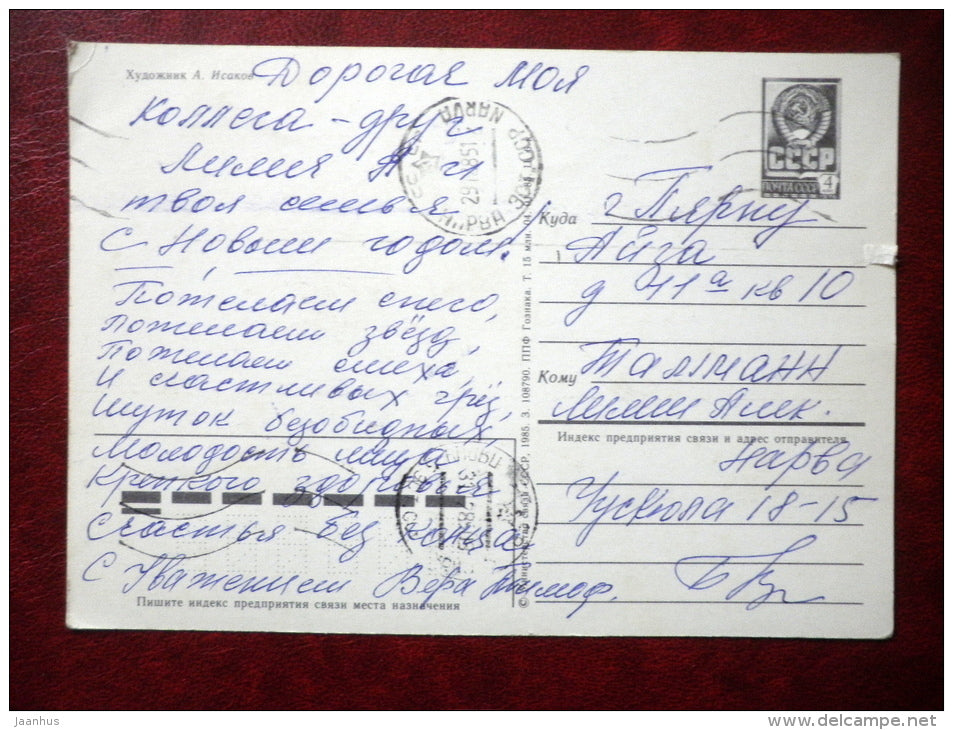 Художник А. Исаков
Дорогая моя
коллега - друг
Лилия А. и
твоя семья
С Новым годом!
Пожелаем снега,
Пожелаем звёзд,
Пожелаем смеха,
И счастливых грёз,
Шуток безобидных,
Молодость лица
Крепкого здоровья
Счастья без конца
С Уважением Вера Тимоф.
Пишите индекс предприятия связи места назначения
СССР
ПОЧТА СССР 4
Куда г Пярну
Айга
д 41а кв 10
Кому Талманн
Лилии Алек.
Индекс предприятия связи и адрес отправителя
Нарва
Ускюла 18-15
© Министерство связи СССР, 1985. З. 108790. ППФ Гознака. Т. 15 млн.
NARVA
НАРВА ЭСТ. ССР
Jaanhus
www.delcampe.net